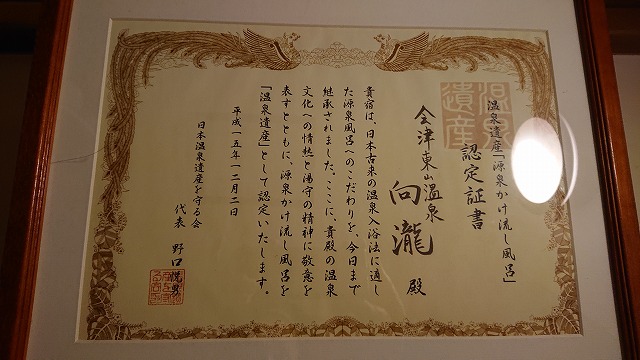 温泉遺産「源泉かけ流し風呂」
認定証書
温泉遺産
会津東山温泉
向瀧 殿
貴宿は、日本古来の温泉入浴法に適し
た源泉風呂へのこだわりを、今日まで
継承されました。ここに、貴殿の温泉
文化への情熱と湯守の精神に敬意を
表すとともに、源泉かけ流し風呂を
「温泉遺産」として認定いたします。
平成一五年一二月二日
日本温泉遺産を守る会
代表 野口悦男